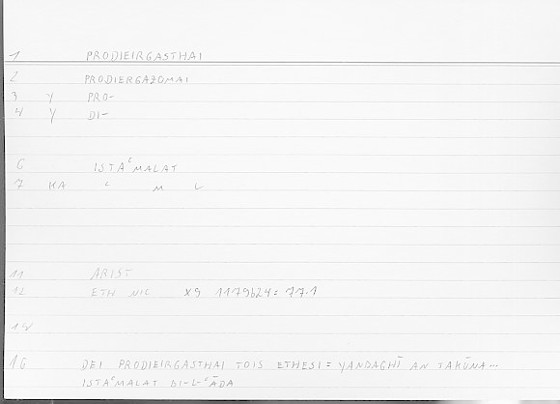 1 PRODIEIRGASTHAI
2 PRODIERGAZOMAI
3 Y PRO-
4 Y DI-
6 ISTAʿMALAT
7 KA ʿ M L
11 ARIST
12 ETH NIC X9 1179b24 = 77.1
14
16 DEI PRODIEIRGASTHAI TOIS ETHESI = YANDAGHĪ AN TAKŪNA...
ISTAʿMALAT BI-L-ʿĀDA